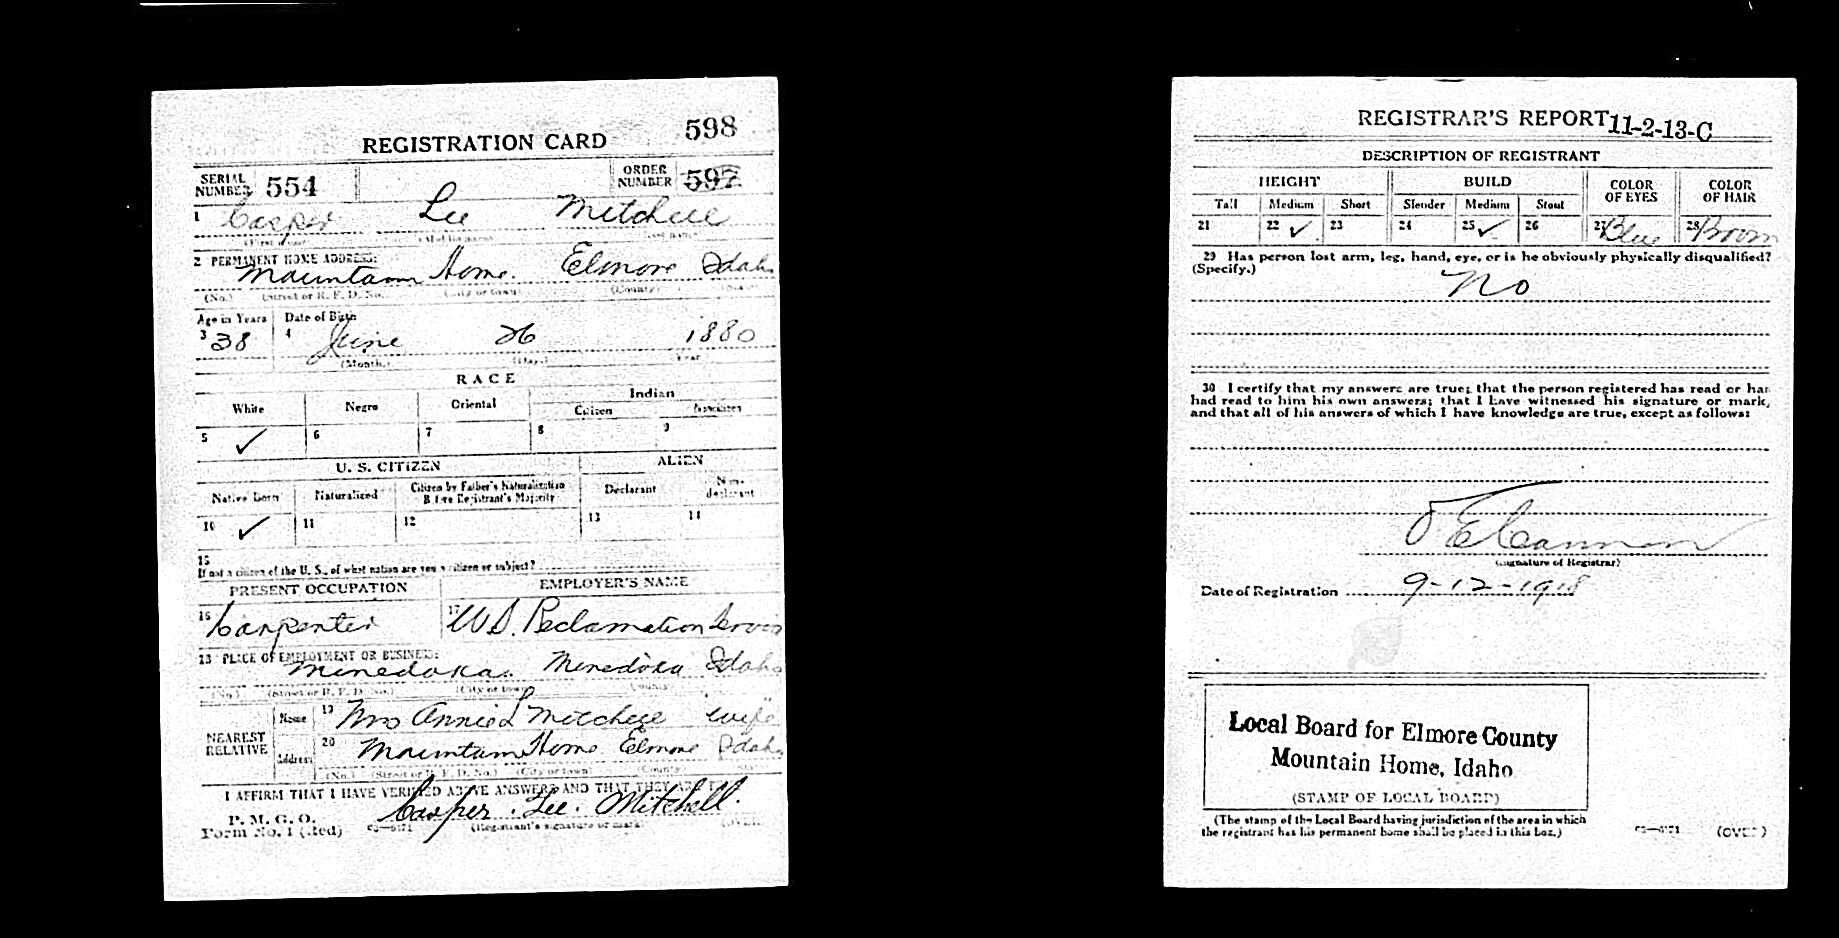 REGISTRATION CARD 598
SERIAL NUMBER 554 ORDER NUMBER 597
1 Casper Lee Mitchell
(First name) (Middle name) (Last name)
2 PERMANENT HOME ADDRESS:
Mountain Home. Elmore Idaho
(No.) (Street or R. F. D. No.) (City or town) (County) (State)
Age in Years Date of Birth
3 38 4 June 26 1880
(Month.) (Day.) Year
RACE
White Negro Oriental Indian
Citizen Noncitizen
5 ✓ 6 7 8 9
U. S. CITIZEN ALIEN
Native Born Naturalized Citizen by Father's Naturalization Before Registrant's Majority Declarant Non-declarant
10 ✓ 11 12 13 14
15
If not a citizen of the U. S., of what nation are you a citizen or subject?
PRESENT OCCUPATION EMPLOYER'S NAME
16 Carpenter 17 U.S. Reclamation Servis
18 PLACE OF EMPLOYMENT OR BUSINESS:
Minedoka. Minedoka Idaho
(No.) (Street or R. F. D. No.) (City or town) (County)
NEAREST RELATIVE Name 19 Mrs Annie L Mitchell wife
Address 20 Mountain Home Elmore Idaho
(No.) (Street or R. F. D. No.) (City or town) (County)
I AFFIRM THAT I HAVE VERIFIED ABOVE ANSWERS AND THAT THEY ARE T
P. M. G. O.
Form No. 1 (Red) Casper. Lee. Mitchell.
(Registrant's signature or mark) (OVER)
REGISTRAR'S REPORT 11-2-13-C
DESCRIPTION OF REGISTRANT
HEIGHT BUILD COLOR OF EYES COLOR OF HAIR
Tall Medium Short Slender Medium Stout
21 22 ✓ 23 24 25 ✓ 26 27 Blue 28 Brown
29 Has person lost arm, leg, hand, eye, or is he obviously physically disqualified?
(Specify.)
No
30 I certify that my answers are true; that the person registered has read or has
had read to him his own answers; that I have witnessed his signature or mark,
and that all of his answers of which I have knowledge are true, except as follows:
Cannon
(Signature of Registrar)
Date of Registration 9-12-1918
Local Board for Elmore County
Mountain Home, Idaho
(STAMP OF LOCAL BOARD)
(The stamp of the Local Board having jurisdiction of the area in which
the registrant has his permanent home shall be placed in this box.)
(OVER)